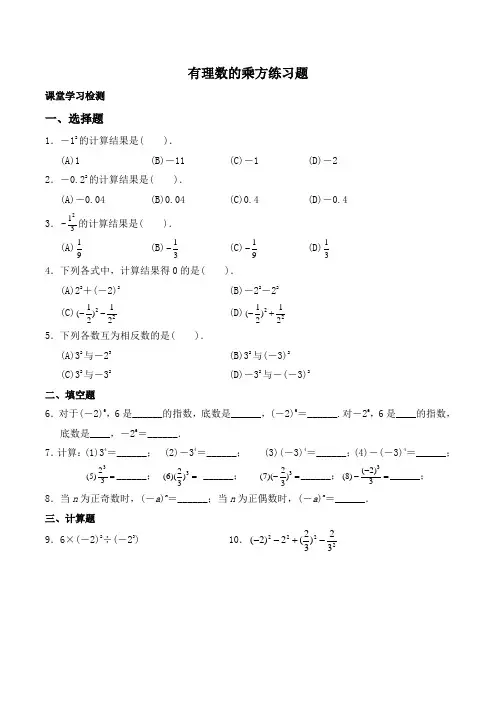 有理数的乘方练习题
课堂学习检测
一、选择题
1．－1²的计算结果是( )．
(A)1 (B)－11 (C)－1 (D)－2
2．－0.2²的计算结果是( )．
(A)－0.04 (B)0.04 (C)0.4 (D)－0.4
3．－1²/3的计算结果是( )．
(A)1/9 (B)－1/3 (C)－1/9 (D)1/3
4．下列各式中，计算结果得0的是( )．
(A)2²＋(－2)² (B)－2²－2²
(C)(－1/2)²－1/2² (D)(－1/2)²＋1/2²
5．下列各数互为相反数的是( )．
(A)3²与－2³ (B)3²与(－3)²
(C)3²与－3² (D)－3²与－(－3)²
二、填空题
6．对于(－2)⁶，6是______的指数，底数是______，(－2)⁶＝______．对－2⁶，6是____的指数，
底数是____，－2⁶＝______．
7．计算：(1)3⁴＝______； (2)－3⁴＝______； (3)(－3)⁴＝______；(4)－(－3)⁴＝______；
(5)2³/3＝______； (6)(2/3)³＝ ______； (7)(－2/3)³＝______；(8)－(－2)³/3＝______；
8．当n为正奇数时，(－a)ⁿ＝______；当n为正偶数时，(－a)ⁿ＝______．
三、计算题
9．6×(－2)²÷(－2³) 10．(－2)²－2²＋(2/3)²－2/3²